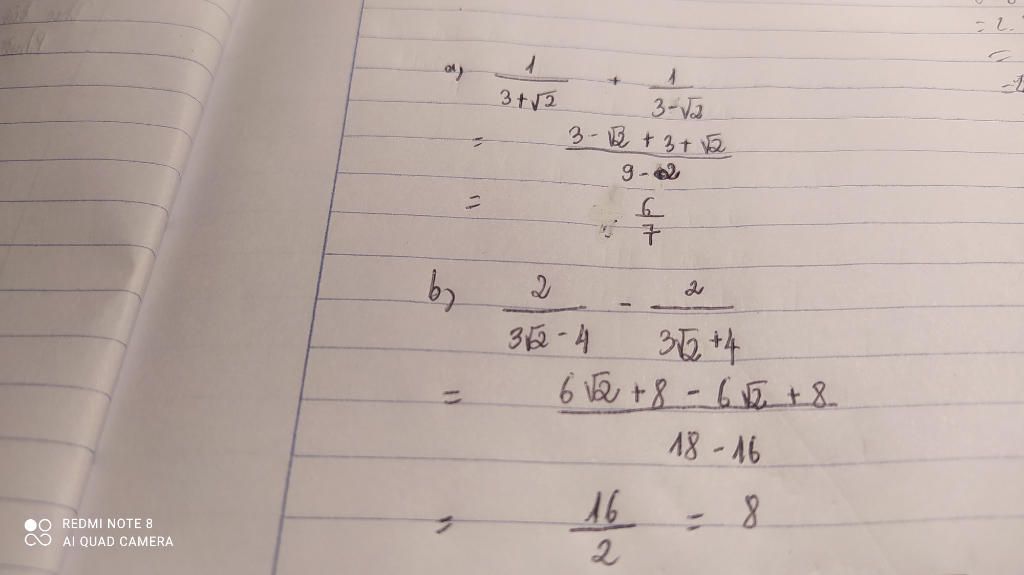 a, 1/(3+√2) + 1/(3-√2)
= (3 - √2 + 3 + √2)/(9-2)
= 6/7
b, 2/(3√2 - 4) - 2/(3√2 + 4)
= (6√2 + 8 - 6√2 + 8)/(18 - 16)
= 16/2 = 8
REDMI NOTE 8
AI QUAD CAMERA